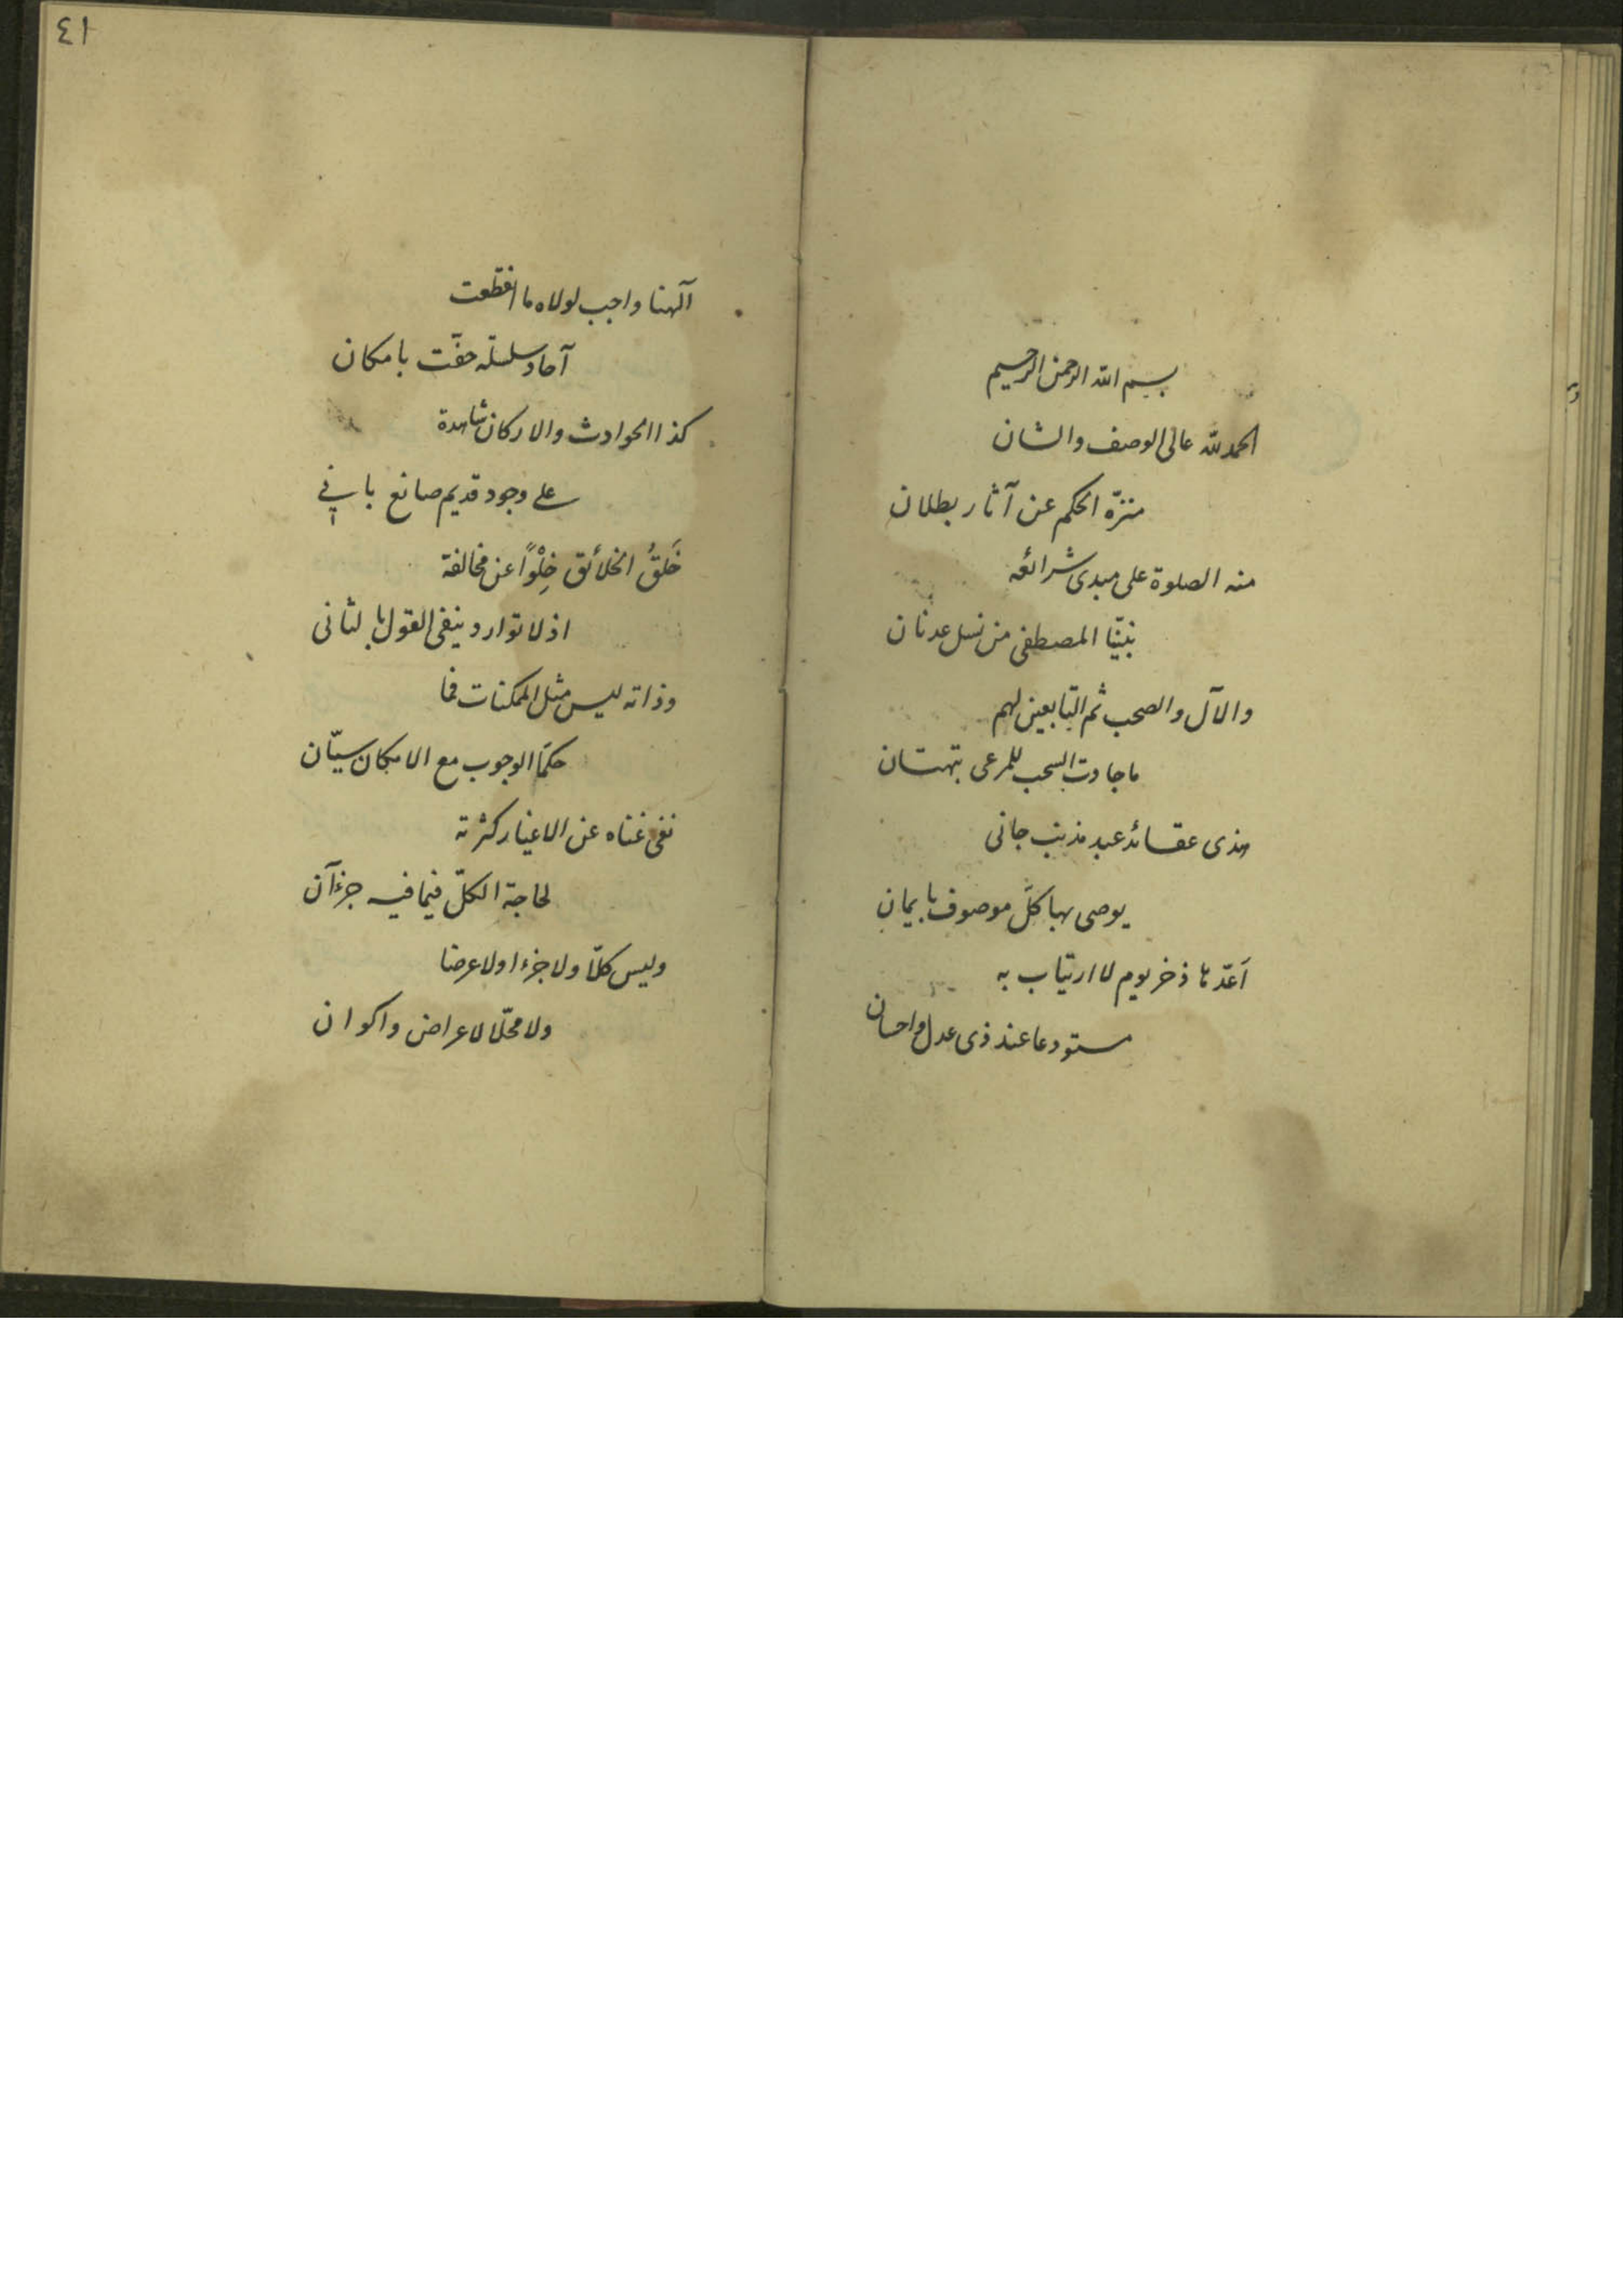 بسم الله الرحمن الرحيم
الحمد لله عالى الوصف والشان
منزّه الحكم عن آثار بطلان
منه الصلوة على مبدى شرائعه
نبيّنا المصطفى من نسل عدنان
والآل والصحب ثم التّابعين لهم
ما جادت السحب للمرعى بتهتان
هذى عقائد عبد مذنب جانى
يوصى بها كلّ موصوف بايمان
اَعدّها ذخر يوم لا ارتياب به
مستودعا عند ذى عدل واحسان
٤١
آلهنا واجب لولاه ما انقطعت
آحاد سلسلة حفّت بامكان
كذا الحوادث والاركان شاهدة
على وجود قديم صانع بانى
خَلقُ الخلائق خِلْوًا عن مخالفة
اذ لا توارد ينفى القول بالثانى
وذاته ليس مثل الممكنات فما
حكمَا الوجوب مع الامكان سيّان
نفى غناه عن الاغيار كثرته
لحاجة الكلّ فيما فيه جزءآن
وليس كلّا ولا جزءا ولا عرضا
ولا محلّا لاعراض واكوان